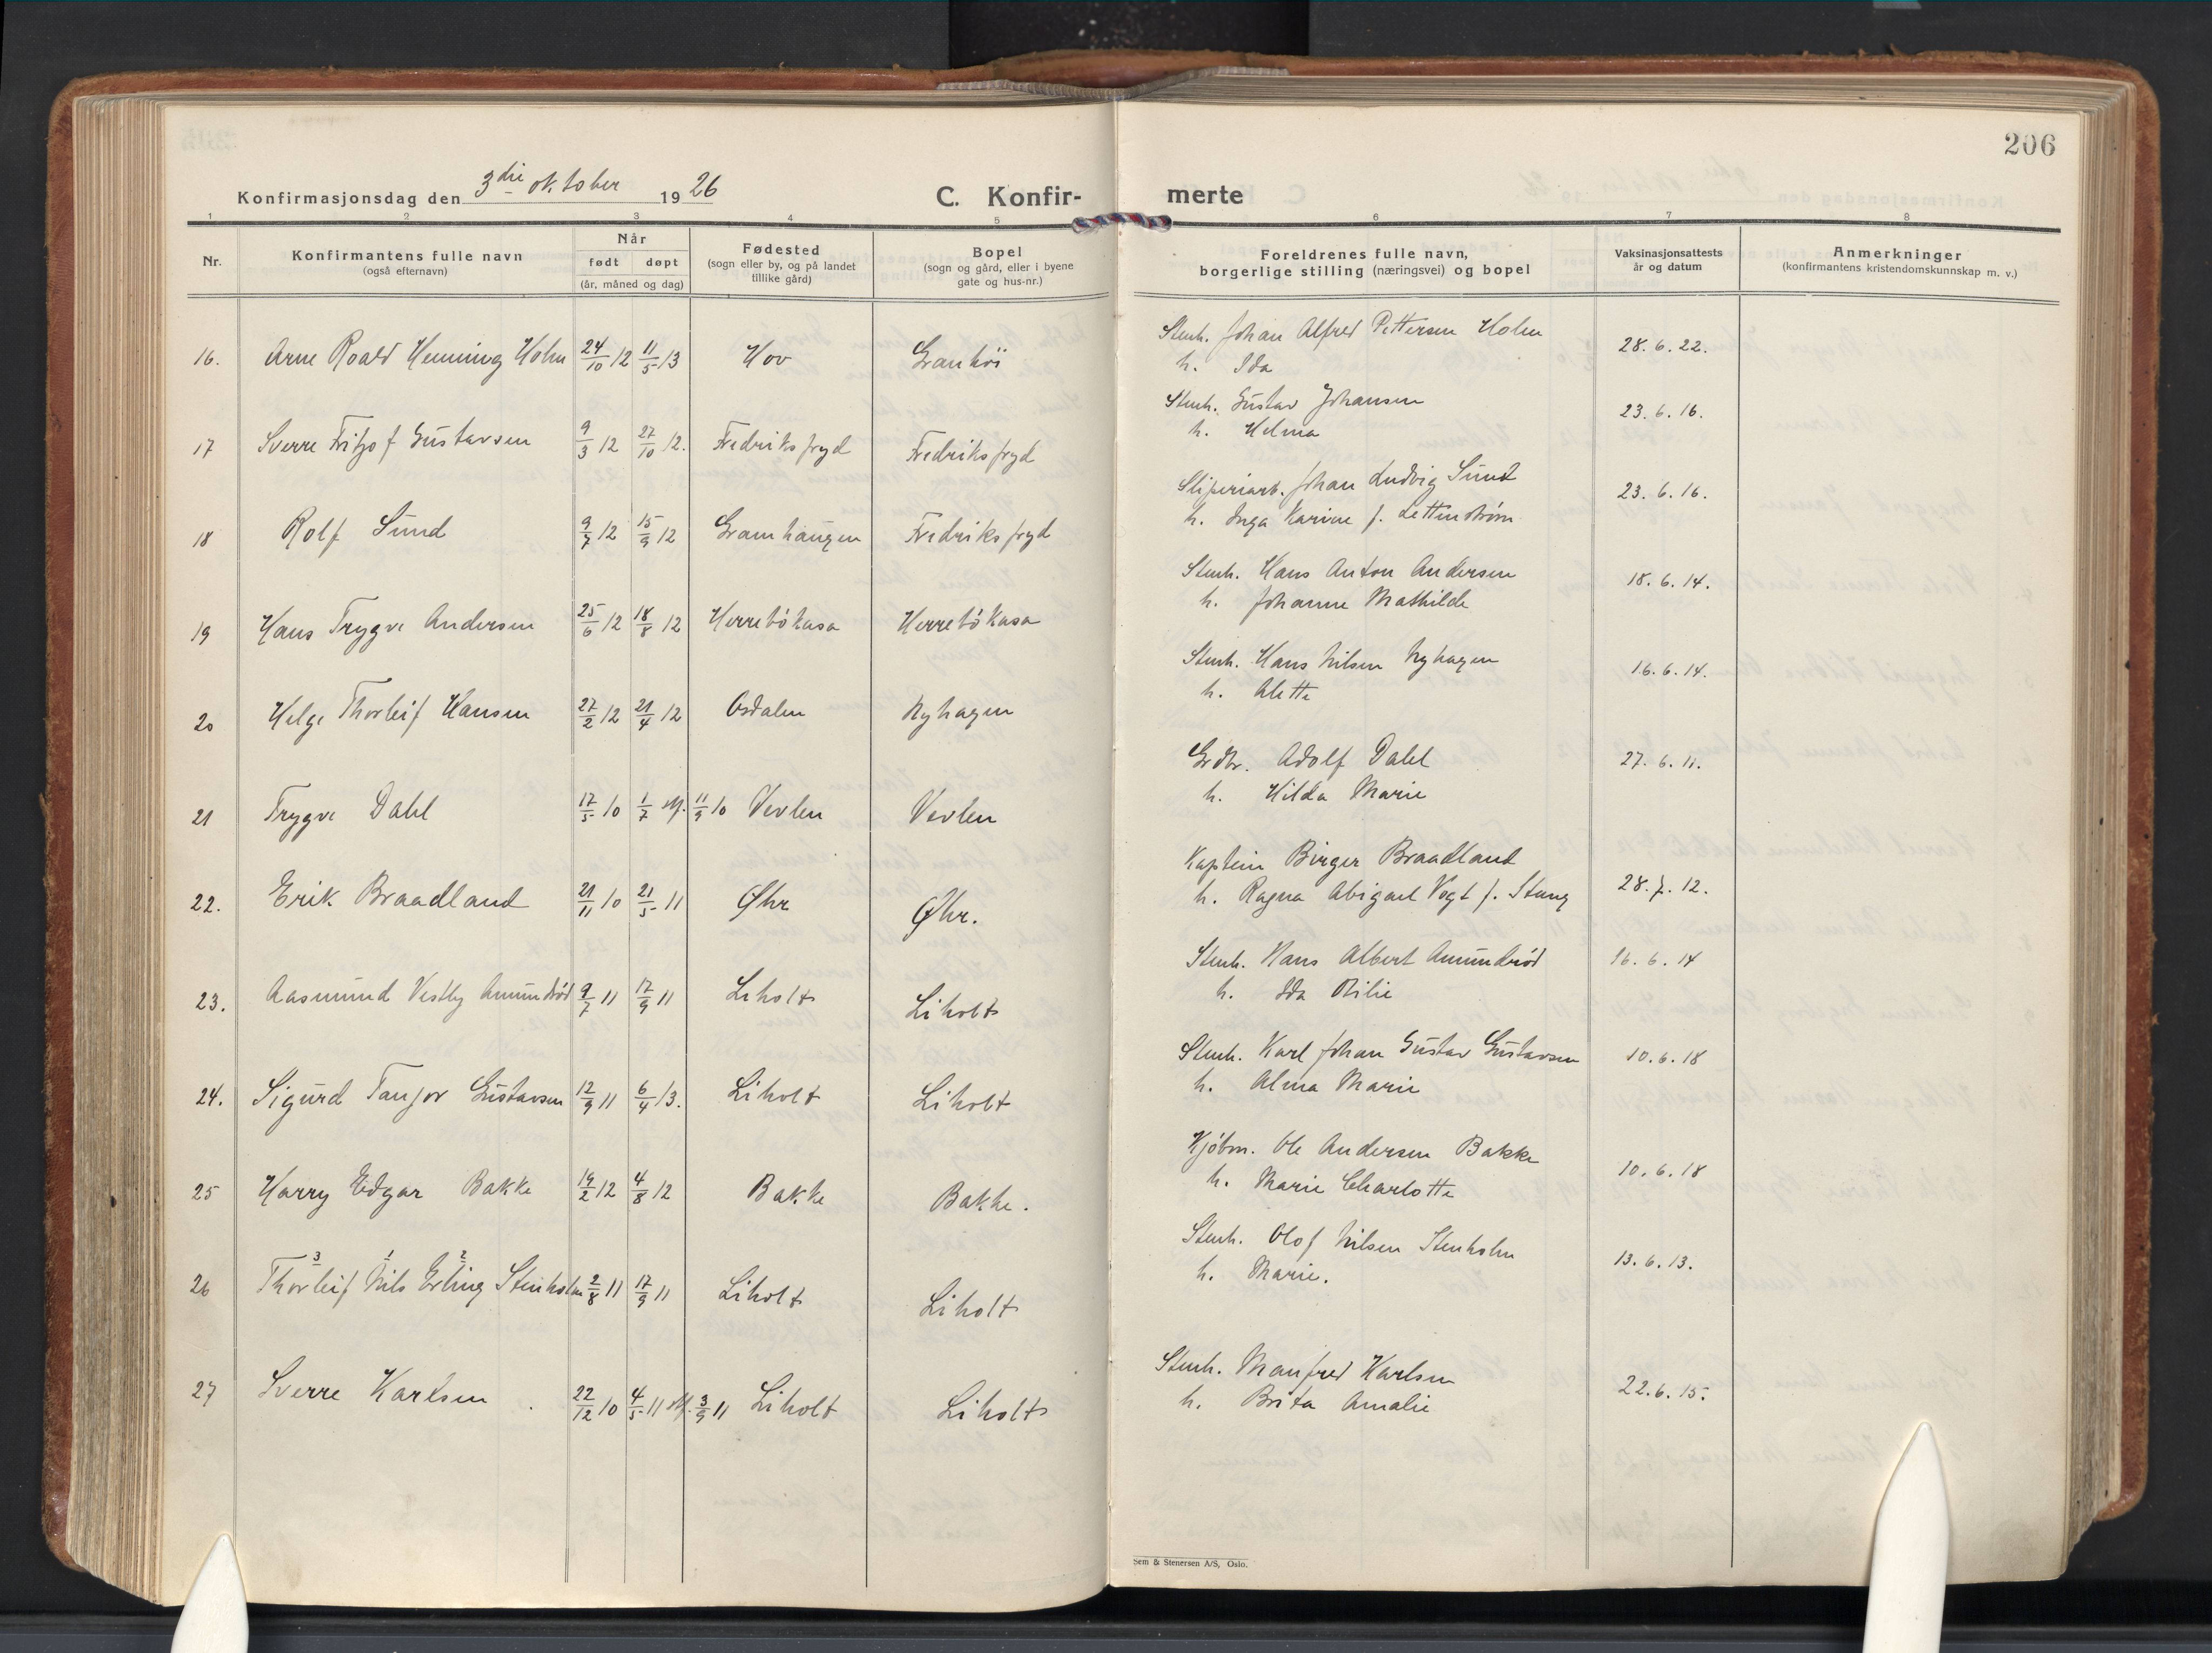 206
Konfirmasjonsdag den 3die oktober 1926
C. Konfir-
merte
1 2 3 4 5 6 7 8
Nr.
Konfirmantens fulle navn
(også efternavn)
Når
født døpt
(år, måned og dag)
Fødested
(sogn eller by, og på landet
tillike gård)
Bopel
(sogn og gård, eller i byene
gate og hus-nr.)
Foreldrenes fulle navn,
borgerlige stilling (næringsvei) og bopel
Vaksinasjonsattests
år og datum
Anmerkninger
(konfirmantens kristendomskunnskap m. v.)
16. Arne Roald Henning Holm 24/10 12 11/5 13 Hov Granhöi
Stenh. Johan Alfred Pettersen Holm
h. Ida
28. 6. 22.
17 Sverre Fritjof Gustavsen 9/3 12 27/10 12. Fredriksfryd Fredriksfryd
Stenh. Gustav Johansen
h. Helma
23. 6. 16.
18 Rolf Sund 9/7 12 15/9 12 Gramhaugen Fredriksfryd
Sliperiarb. Johan Ludvig Sund
h. Inga Karine f. Lettenström
23. 6. 16.
19 Hans Trygve Andersen 25/6 12 18/8 12 Herrebökasa Herrebökasa
Stenh. Hans Anton Andersen
h. Johanne Mathilde
18. 6. 14.
20 Helge Thorleif Hansen 27/2 12 21/4 12 Asdalen Nyhagen
Stenh. Hans Nilsen Nyhagen
h. Alette
16. 6. 14.
21 Trygve Dahl 17/5 10 1/7 st. 11/9 10 Vevlen Vevlen
Grdbr. Adolf Dahl
h. Hilda Marie
27. 6. 11.
22. Erik Braadland 21/11 10 21/5 11 Øhr Øhr.
Kaptein Birger Braadland
h. Ragna Abigael Vogt f. Stang
28. 7. 12.
23. Aasmund Vestby Amundröd 9/7 11 17/9 11 Liholt Liholt
Stenh. Hans Albert Amundröd
h. Ida Otilie
16. 6. 14
24. Sigurd Tanjor Gustavsen 12/9 11 6/4 13. Liholt Liholt
Stenh. Karl Johan Gustav Gustavsen
h. Alma Marie
10. 6. 18
25 Harry Edgar Bakke 14/2 12 4/8 12 Bakke Bakke.
Kjöbm. Ole Andersen Bakke
h. Marie Charlotte
10. 6. 18
3 1 2
26 Thorleif Nils Erling Stenholm 2/8 11 17/9 11 Liholt Liholt
Stenh. Olof Nilsen Stenholm
h. Marie.
13. 6. 13.
27 Sverre Karlsen 22/12 10 4/5 11 st. 3/9 11 Liholt Liholt
Stenh. Manfred Karlsen
h. Brita Amalie
22. 6. 15.
Sem & Stenersen A/S, Oslo.